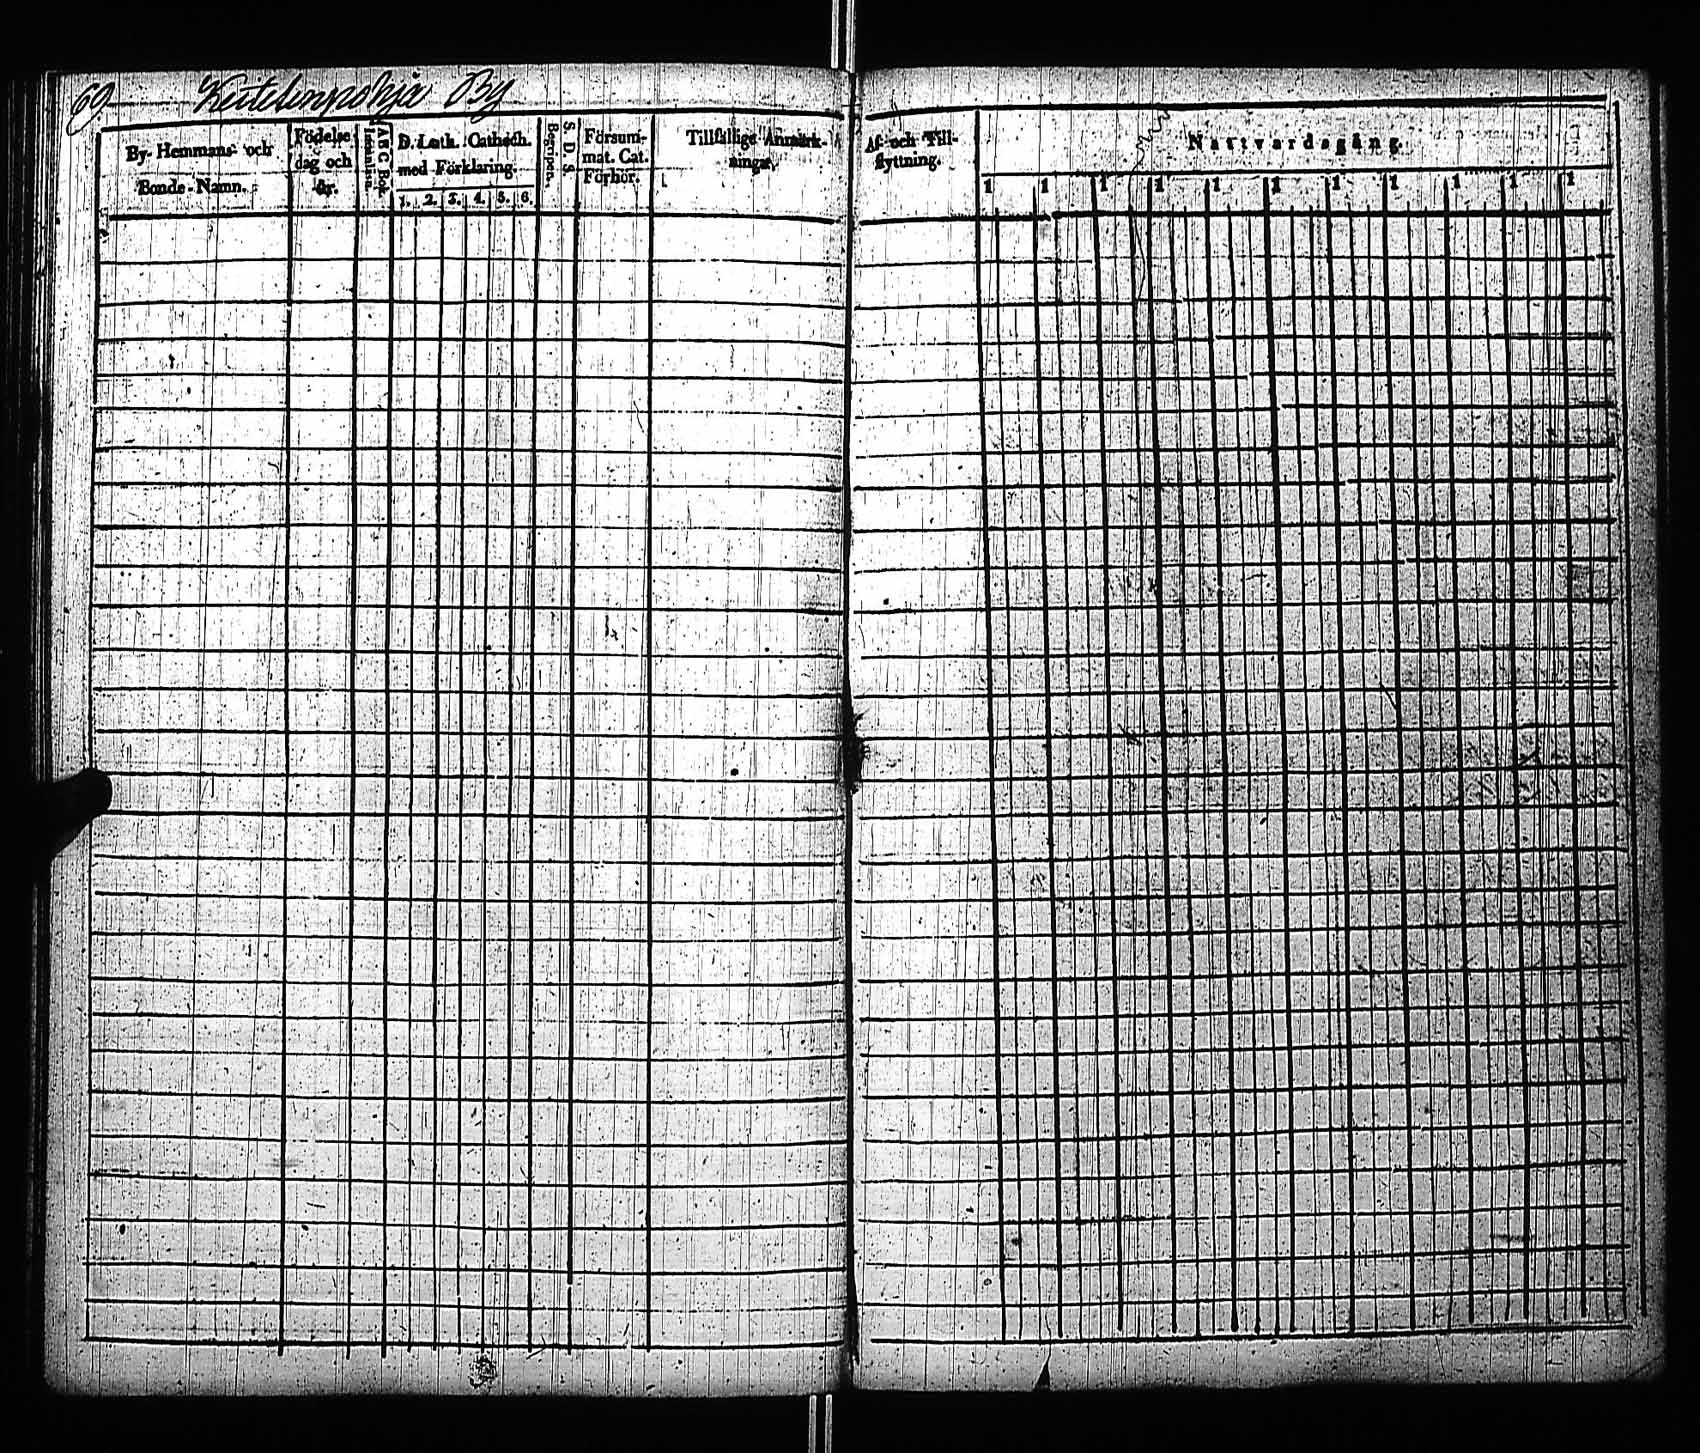 69 Keitelenpohja By
By- Hemmans- och
Bonde-Namn.
Födelse
dag och
år.
A B C Bok
Innanläsn.
D. Luth. Cathech.
med Förklaring.
1. 2. 3. 4. 5. 6.
S. D. S.
Begripen.
Försum-
mat. Cat.
Förhör.
Tillfällige Anmärk-
ningar.
Af- och Till-
flyttning.
Nattvardsgång.
1 1 1 1 1 1 1 1 1 1 1